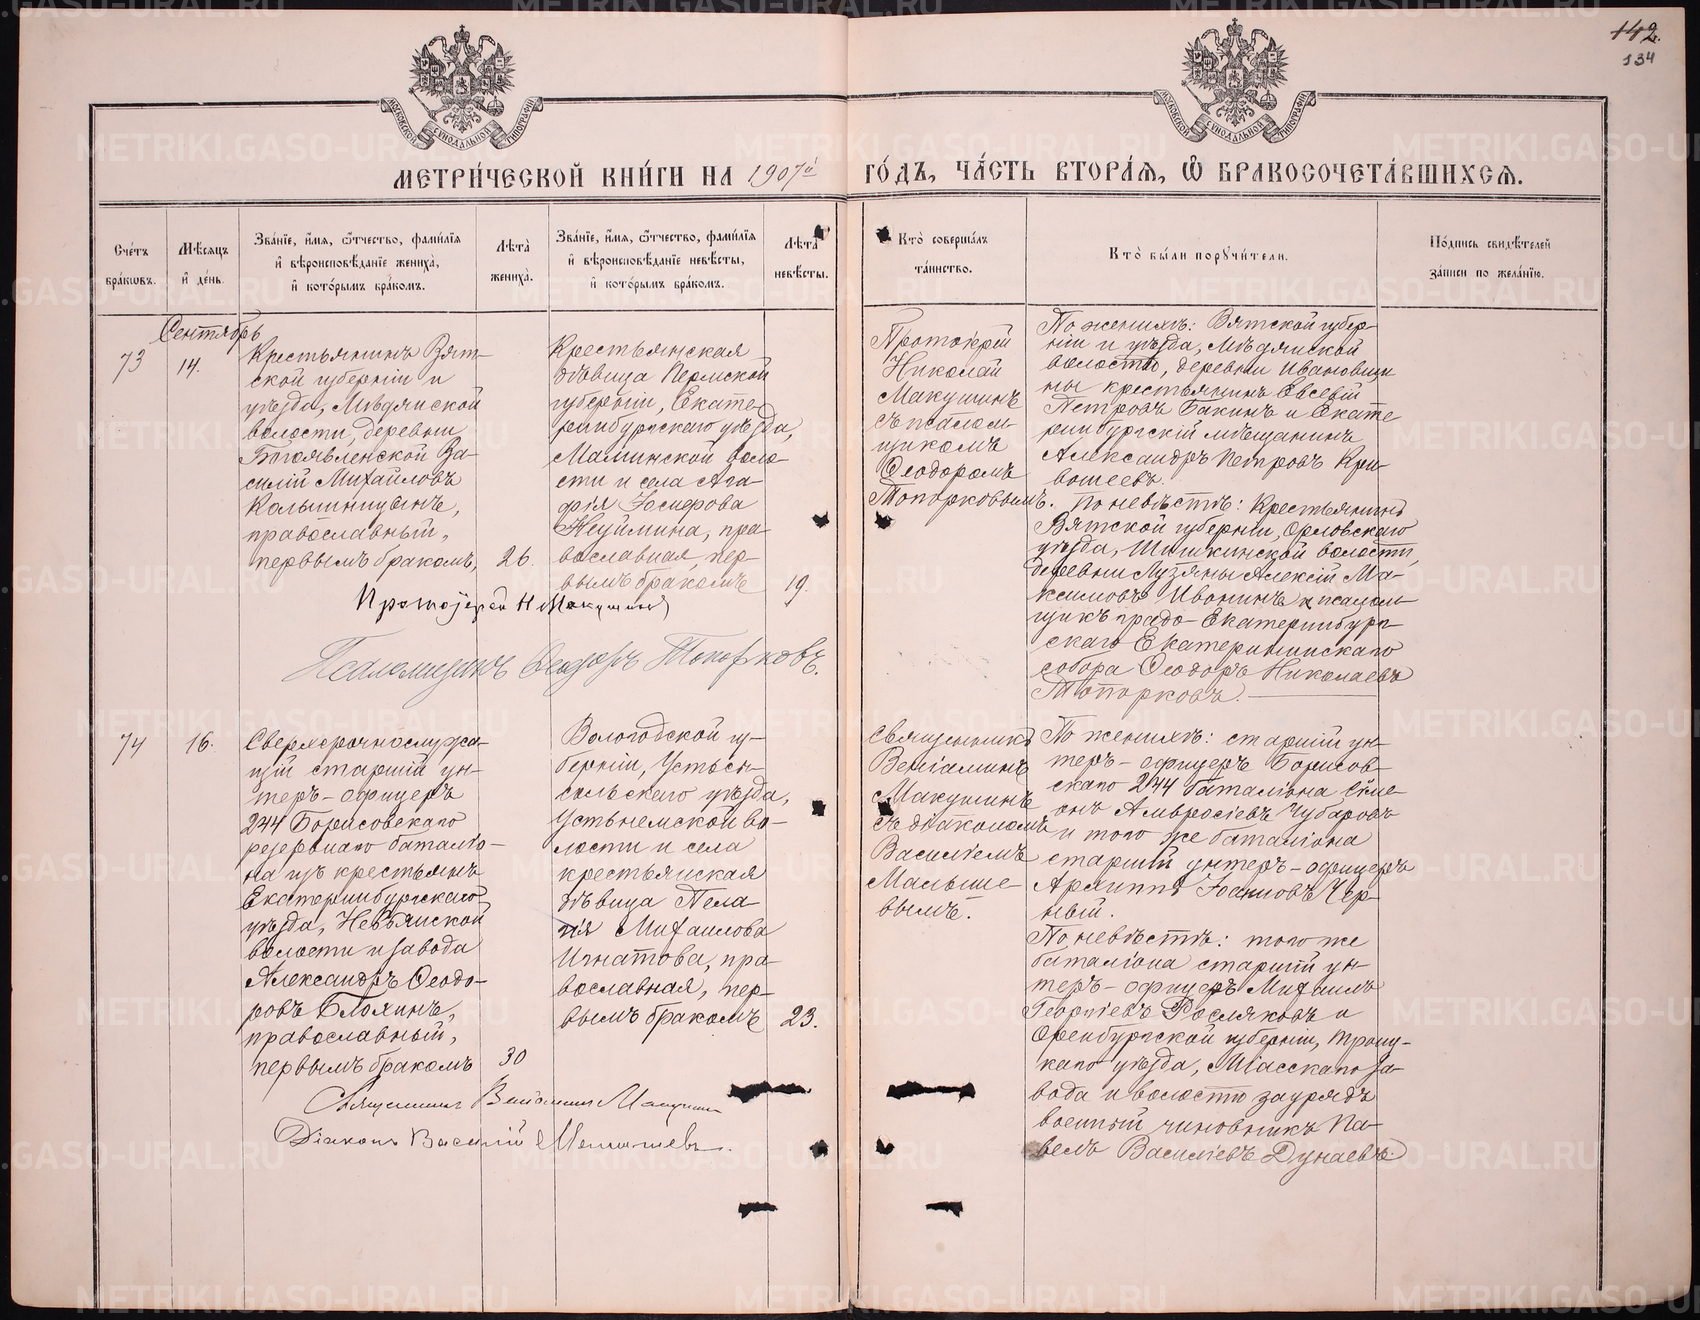 142.
134
МОСКОВСКОЙ СѴНОДАЛЬНОЙ ТИПОГРАФІИ
МОСКОВСКОЙ СѴНОДАЛЬНОЙ ТИПОГРАФІИ
МЕТРИ́ЧЕСКОЙ КНИ́ГИ НА 1907й ГО́ДЪ, ЧА́СТЬ ВТОРА́Я, Ѽ БРАКОСОЧЕТА́ВШИХСЯ.
Сче́тъ
бра́кѡвъ.
Мѣ́сяцъ
и҆ де́нь.
Зва́нїе, и҆́мя, ѻ҆́тчество, фами́лїя
и҆ вѣроисповѣ́данїе жениха̀,
и҆ кото́рымъ бра́комъ.
Лѣ́та
жениха̀.
Зва́нїе, и҆́мя, ѻ҆́тчество, фами́лїя
и҆ вѣроисповѣ́данїе невѣ́сты,
и҆ кото́рымъ бра́комъ.
Лѣ́та
невѣ́сты.
Кто̀ соверша́лъ
та́инство.
Кто̀ бы́ли порꙋчи́тели.
По́дпись свидѣ́телей
за́писи по жела́нїю.
Сентябрь
73
14.
Крестьянинъ Вят-
ской губерніи и
уѣзда, Мѣдянской
волости, деревни
Богоявленской Ва-
силій Михаиловъ
православный,
первымъ бракомъ,
26.
Крестьянская
дѣвица Пермской
губерніи, Екате-
ринбургскаго уѣзда,
Маминской воло-
сти и села Ага-
фія
Неуймина, пра-
вославная, пер-
вымъ бракомъ
19.
Протоіерей
Николай
Макушинъ
съ псалом-
щикомъ
Ѳеодоромъ
Топорковымъ.
По женихѣ: Вятской губер-
ніи и уѣзда, Мѣдянской
волости, деревни Ивановщи
ны крестьянинъ Евсевій
Петровъ Бакинъ и Екате
ринбургскій мѣщанинъ
Александръ Петровъ Кри-
вошеевъ.
По невѣстѣ: Крестьянинъ
Вятской губерніи, Орловскаго
уѣзда, Шишкинской волости,
деревни Лузяны Алексій Ма-
ксимовъ Ивонинъ и псалом-
щикъ градо-Екатеринбург-
скаго Екатерининскаго
собора Ѳеодоръ Николаевъ
Топорковъ.
Протоіерей Н Макушинъ
Псаломщикъ Ѳеодоръ Топорковъ.
74
16.
Сверхсрочнослужа-
щій старшій ун-
теръ-офицеръ
244 Борисовскаго
резервнаго баталіо-
на изъ крестьянъ
Екатеринбургскаго
уѣзда, Невьянской
волости и завода
Александръ Ѳеодо-
ровъ Блохинъ,
православный,
первымъ бракомъ
30
Вологодской гу-
берніи, Устьсы-
сольскаго уѣзда,
Устьнемской во-
лости и села
крестьянская
дѣвица Пела-
гія Михаилова
Игнатова, пра-
вославная, пер-
вымъ бракомъ
23.
Священникъ
Веніаминъ
Макушинъ
съ діакономъ
Василіемъ
Малыше-
вымъ.
По женихѣ: старшій ун-
теръ-офицеръ Борисов-
скаго 244 баталіона Симе-
онъ Амвросіевъ Чубаровъ
и того же баталіона
старшій унтеръ-офицеръ
Архиппъ Іоанновъ Чер-
ный.
По невѣстѣ: того же
баталіона старшій ун-
теръ-офицеръ Михаилъ
Георгіевъ Росляковъ и
Оренбургской губерніи, Троиц-
каго уѣзда, Міасскаго за-
вода и волости заурядъ
военный чиновникъ Па-
велъ Василіевъ Дунаевъ.
Священникъ Веніаминъ Макушинъ
Діаконъ Василій Малышевъ.
METRIKI.GASO-URAL.RU